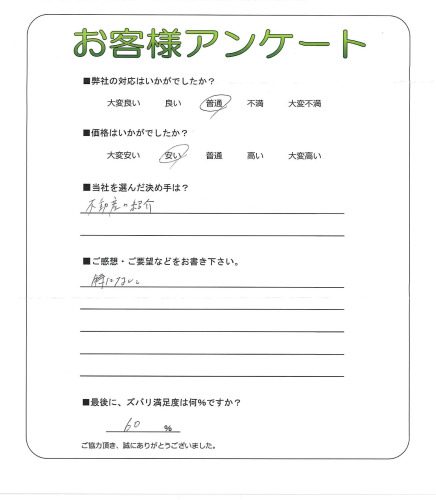 お客様アンケート
■弊社の対応はいかがでしたか？
大変良い 良い 普通 不満 大変不満
■価格はいかがでしたか？
大変安い 安い 普通 高い 大変高い
■当社を選んだ決め手は？
不動産の紹介
■ご感想・ご要望などをお書き下さい。
特にない。
■最後に、ズバリ満足度は何%ですか？
60 %
ご協力頂き、誠にありがとうございました。